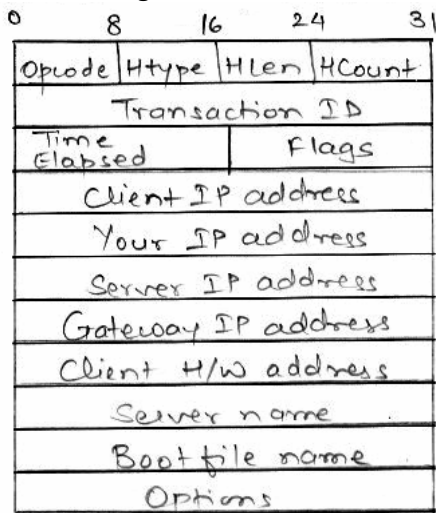 0 8 16 24 31
Opcode Htype HLen HCount
Transaction ID
Time Elapsed Flags
Client IP address
Your IP address
Server IP address
Gateway IP address
Client H/W address
Server name
Boot file name
Options